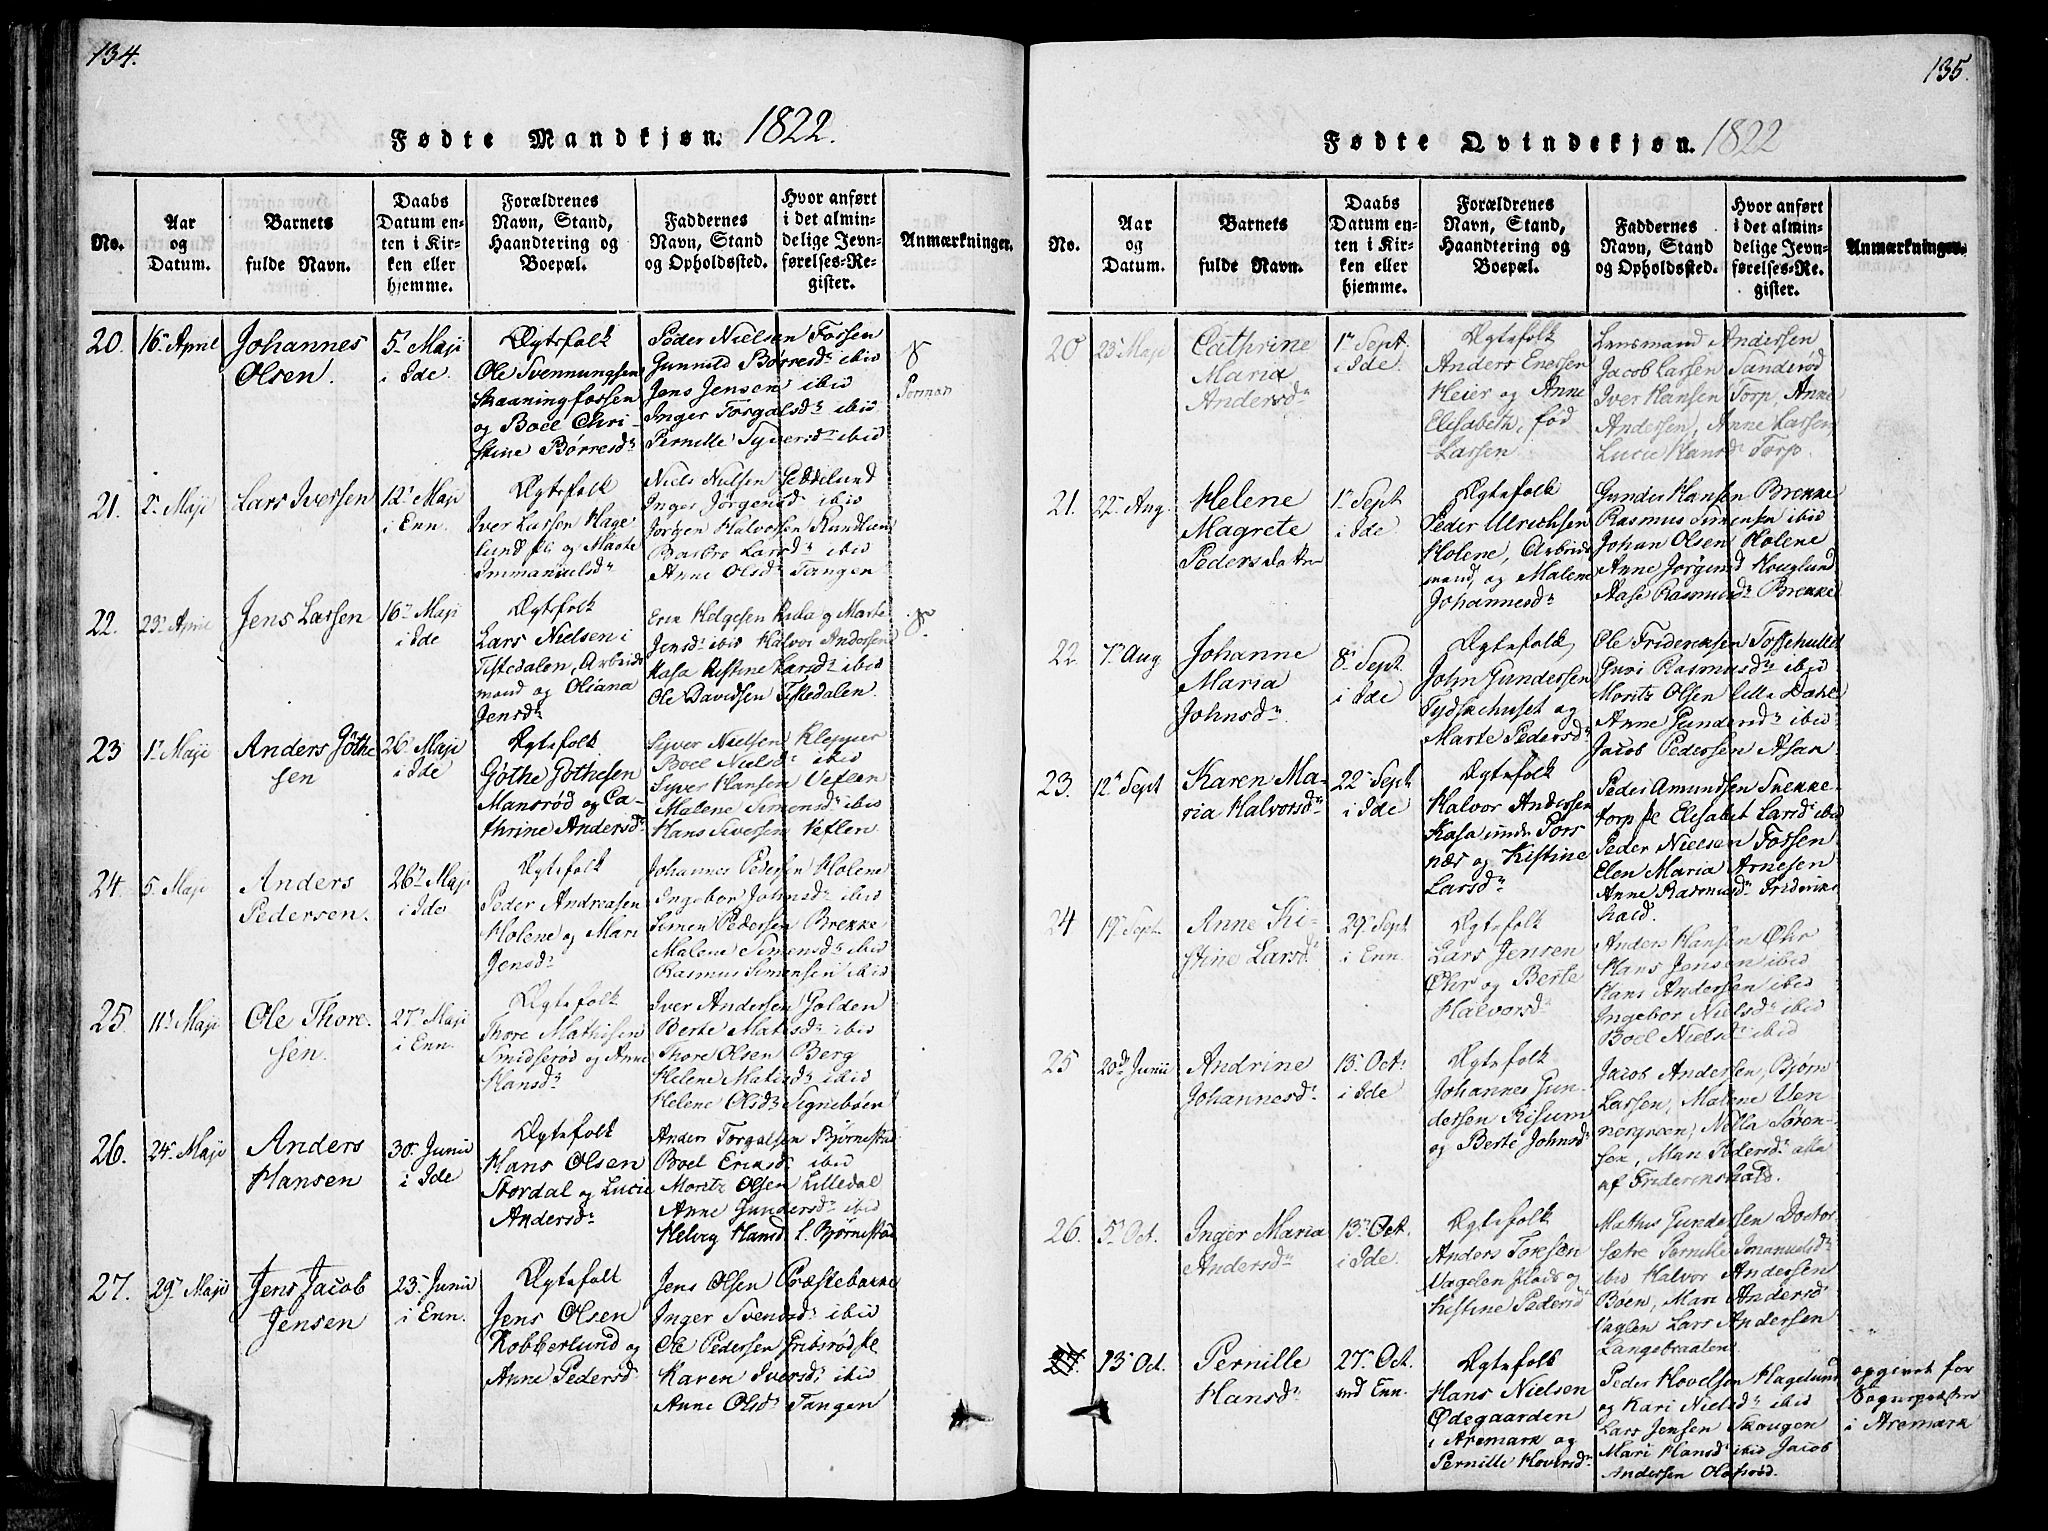 134.
Fødte Mandkjøn. 1822.
No.
Aar
og
Datum.
Barnets
fulde Navn.
Daabs
Datum en-
ten i Kir-
ken eller
hjemme.
Forældrenes
Navn, Stand,
Haandtering og
Boepæl.
Faddernes
Navn, Stand
og Opholdssted.
Hvor anført
i det almin-
delige Jevn-
førelses-Re-
gister.
Anmærkninger.
20. 16 April
Johannes
Olsen.
5 Maji
i Ide.
Ægtefolk
Ole Svennungsen
Skaaningfossen
og Boel Chri-
stine Børresdr
Peder Nielsen Fossen
Gunnild Børresdr ibid
Jens Jensen ibid
Inger Torgalsdr ibid
Pernille Syversdr ibid
21. 2 Maji
Lars Iversen
12 Maji
i Enn.
Ægtefolk
Iver Larsen Hage-
lund og Marte
Immanuelsdr
Niels Nielsen
Inger Jørgensd ibid
Jørgen Halvorsen
Barbro Larsdr ibid
Anne Olsdr Tangen
22. 23 April
Jens Larsen
16 Maji
i Ide
Ægtefolk
Lars Nielsen i
Tistedalen, Arbeids
mand og Oliana
Jensdr
Erik Helgesen Kasa og Marte
Jensdr ibid Halvor Andersen
Kasa Kistine Larsdr ibid
Ole Davidsen Tistedalen.
23 1 Maji
Anders Gøthe
sen
26 Maji
i Ide
Ægtefolk
Gøthe Gøthesen
Mansrød og Ca-
thrine Andersdr
Syver Nielsen Klepper
Boel Nielsdr ibid
Syver Hansen Vetlen
Malene Simensdr ibid
Hans Siversen Vetlen
24. 5 Maji
Anders
Pedersen.
26 Maji
i Ide
Ægtefolk
Peder Andreasen
Holene og Mari
Jensdr
Johannes Pedersen Holene
Ingebor Johnsdr ibid
Simen Pedersen Brekke
Malene Simensdr ibid
Rasmus Simensen ibid
25. 11 Maji
Ole Thore-
sen.
27 Maji
i Enn.
Ægtefolk
Thore Mathisen
Smidserød og Anne
Hansdr
Iver Andersen Golden
Berte Matisdr ibid
Thore Olsen Berg
Helene Matisdr ibid
Helene Olsdr Signebøen
26. 24 Maji
Anders
Hansen
30 Junii
i Ide
Ægtefolk
Hans Olsen
Stordal og Lucie
Andersdr
Anders Torgalsen Bjørnestad
Boel Eriksd ibid
Moritz Olsen Lilledal
Anne Gundersdr ibid
Helvig Hansd l. Bjørnestad
27. 29 Maji
Jens Jacob
Jensen
23 Junii
i Enn.
Ægtefolk
Jens Olsen
Kobberlund og
Anne Pedersd
Jens Olsen Præstebakke
Inger Svendsdr ibid
Ole Pedersen Gribsrød
Karen Iversdr ibid
Anne Olsdr Tangen
135.
Fødte Qvindekjøn. 1822
No.
Aar
og
Datum.
Barnets
fulde Navn.
Daabs
Datum en-
ten i Kir-
ken eller
hjemme.
Forældrenes
Navn, Stand,
Haandtering og
Boepæl.
Faddernes
Navn, Stand
og Opholdssted.
Hvor anført
i det almin-
delige Jevn-
førelses-Re-
gister.
Anmærkninger.
20 23 Maji
Cathrine
Maria
Andersdr
1 Sept.
i Ide.
Ægtefolk
Anders Enersen
Heier og Anne
Elisabeth, fød
Larsen
Lensmand Anderssen
Jacob Larsen Tanderød
Iver Hansen Torp, Anne
Andersen, Anne Larsen,
Lucie Hansdr Torp.
21. 22 Aug.
Helene
Magrete
Pedersdatter
1 Sept
i Ide
Ægtefolk
Peder Ulrichsen
Holene, Arbeids
mand, og Malene
Johannesdr
Gunder Hansen Brekke
Rasmus Simensen ibid
Johan Olsen Holene
Anne Jørgensd Houglund
Aase Rasmusdr Brekke
22 7 Aug
Johanne
Maria
Johnsdr
8 Sept
i Ide
Ægtefolk
John Gundersen
Tydskehuset og
Marte Pedersdr
Ole Frideriksen Tossehullet
Guri Rasmusdr ibid
Moritz Olsen lille Dahl
Anne Gundersdr ibid
Jacob Pedersen Asan
23. 12 Sept
Karen Ma-
ria Halvorsdr
22 Sept
i Ide
Ægtefolk
Halvor Andersen
Kasa under Pors
næs og Kistine
Larsdr
Peder Amundsen Snekke-
torp Elisabet Larsd ibid
Peder Nielsen Fossen
Elen Maria Arnesen
Anne Rasmusdr Frideriks
hald.
24 19 Sept.
Anne Ki-
stine Larsd
29 Sept
i Enn.
Ægtefolk
Lars Jensen
Øhr og Berte
Halvorsdr
Anders Hansen Øhr
Hans Jensen ibid
Hans Andersen ibid
Ingebor Nielsdr ibid
Boel Nielsdr ibid
25 20de Junii
Andrine
Johannesdr
13 Oct.
i Ide
Ægtefolk
Johannes Gun-
dersen Risum
og Berte Johnsdr
Jacob Andersen, Bjørn
Larsen, Malene Ven
nergreen, Nella Søren-
sen, Mari Pedersdr alle
af Frideriks hald.
26. 5 Oct.
Inger Maria
Andersdr
13 Oct.
i Ide.
Ægtefolk
Anders Toresen
og
Kistine Pedersdr
Mathis Gundersen Doctor-
sætre Pernille Imanuelsdr
ibid Halvor Andersen
Bøen, Mari Andersdr
Vaglen Lars Andersen
Langebraaten.
27. 13 Oct.
Pernille
Hansdr
27 Oct.
ved Enn.
Ægtefolk
Hans Nielsen
Ødegaarden
i Aremark og
Pernille Hovelsdr
Peder Hovelsen Hagelund
og Kari Nielsdr ibid
Lars Jensen Skaugen
Mari Hansdr ibid Jacob
Andersen
opgivet for
Sognepræsten
i Aremark